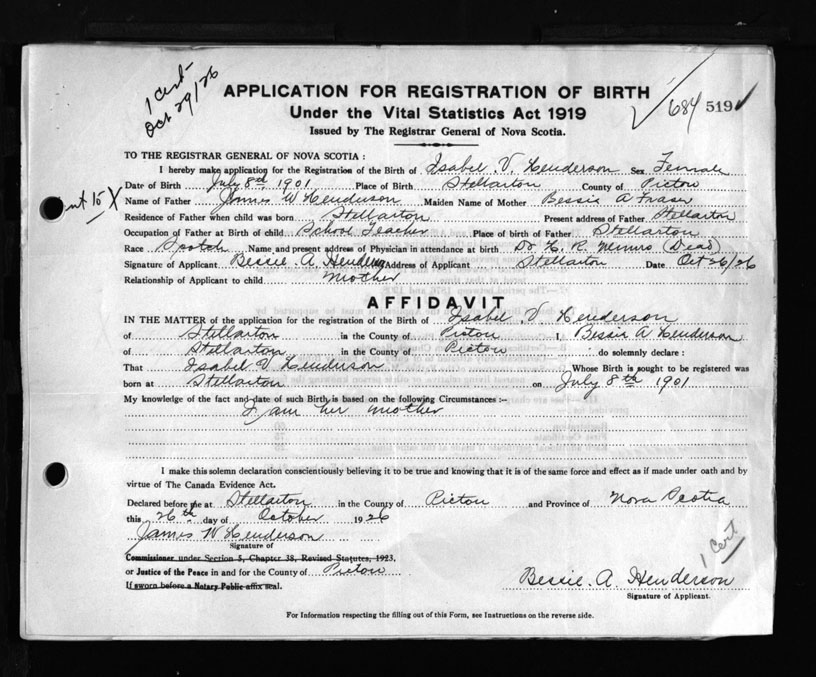 1 cert-
Oct 29/26
APPLICATION FOR REGISTRATION OF BIRTH
684 519
Under the Vital Statistics Act 1919
Issued by The Registrar General of Nova Scotia.
TO THE REGISTRAR GENERAL OF NOVA SCOTIA :
I hereby make application for the Registration of the Birth of Isabel V. Henderson Sex Female
Date of Birth July 8th, 1901 Place of Birth Stellarton County of Pictou
X Name of Father James W Henderson Maiden Name of Mother Bessie A Fraser
Residence of Father when child was born Stellarton Present address of Father Stellarton
Occupation of Father at Birth of child School Teacher Place of birth of Father Stellarton
Race Name and present address of Physician in attendance at birth Dr (Dead)
Signature of Applicant Bessie A. Henderson Address of Applicant Stellarton Date Oct 26/26
Relationship of Applicant to child Mother
AFFIDAVIT
IN THE MATTER of the application for the registration of the Birth of Isabel V Henderson
of Stellarton in the County of Pictou I, Bessie A Henderson
of Stellarton in the County of Pictou do solemnly declare :
That Isabel V Henderson Whose Birth is sought to be registered was
born at Stellarton on July 8th 1901
My knowledge of the fact and date of such Birth is based on the following Circumstances :-
I am her mother
I make this solemn declaration conscientiously believing it to be true and knowing that it is of the same force and effect as if made under oath and by
virtue of The Canada Evidence Act.
Declared before me at Stellarton in the County of Pictou and Province of Nova Scotia
this 26th day of October 1926
James W Henderson
Signature of
1 cert
Commissioner under Section 5, Chapter 38, Revised Statutes, 1923,
or Justice of the Peace in and for the County of Pictou
If sworn before a Notary Public affix seal.
Bessie A. Henderson
Signature of Applicant.
For Information respecting the filling out of this Form, see Instructions on the reverse side.